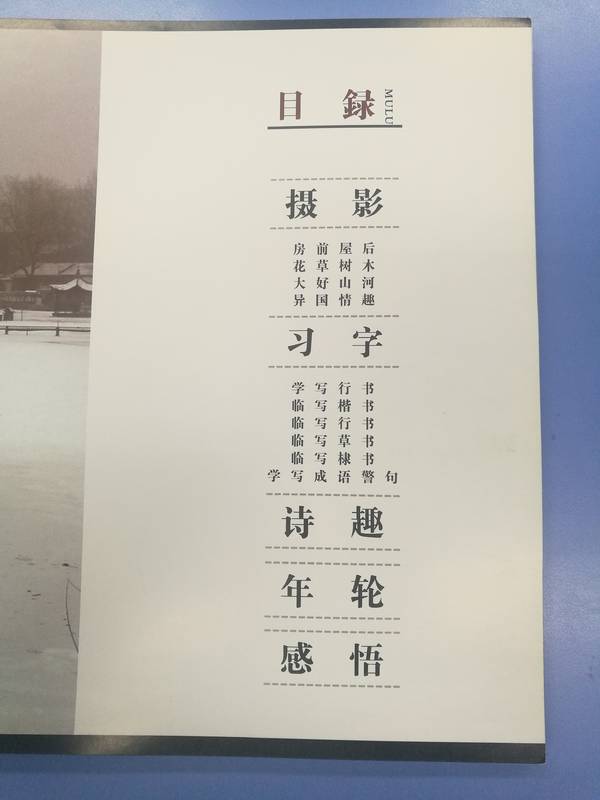 目録
MULU
摄影
房前屋后
花草树木
大好山河
异国情趣
习字
学写行书
临写楷书
临写行书
临写草书
临写棣书
学写成语警句
诗趣
年轮
感悟